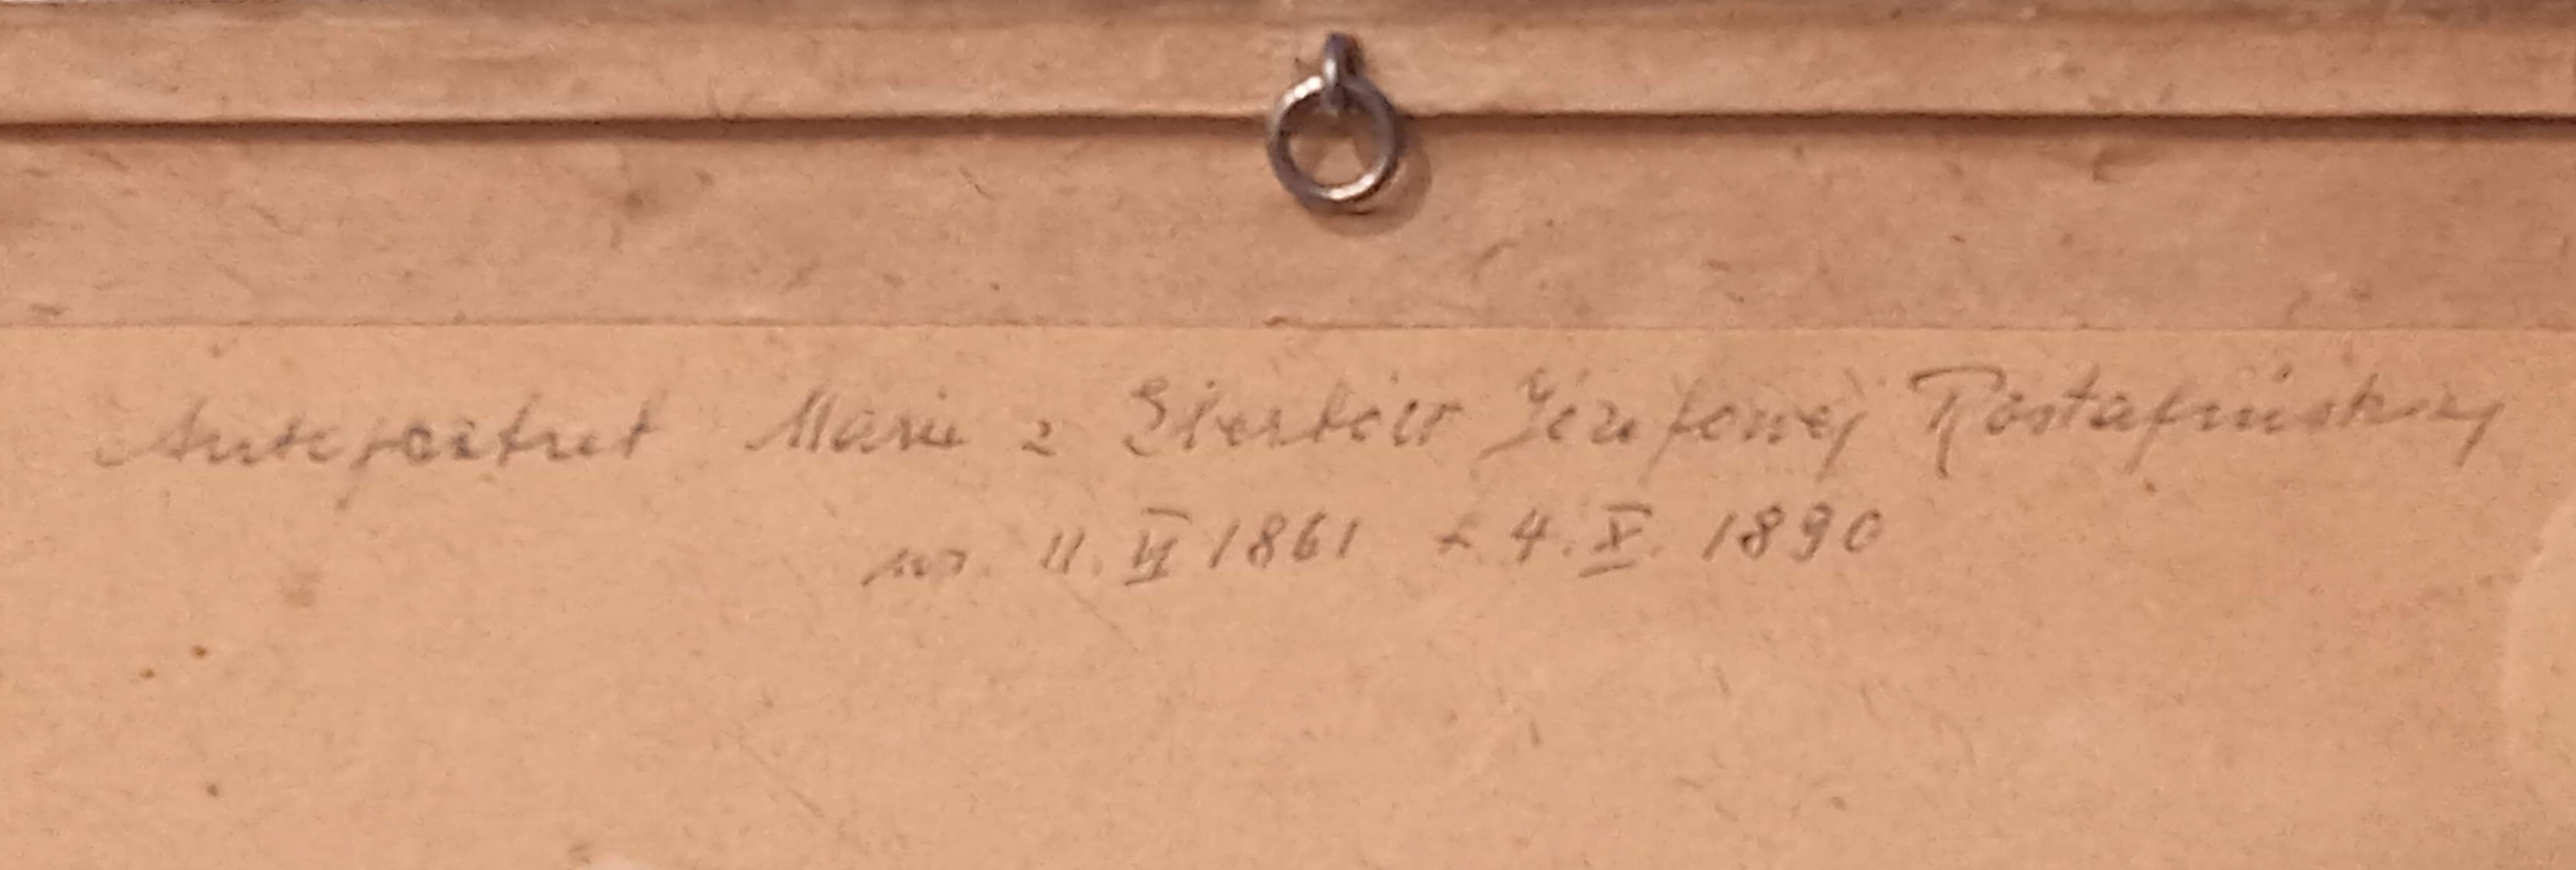 Autoportret Marii z Elertów Józefowej Rostafińskiej
ur. 11. VI 1861 + 4. X. 1890